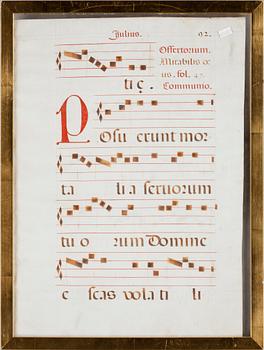 Julius. 92.
Offertorium.
Mirabilis
us. fol. 47.
tiç. Communio.
Posu erunt mor
ta lia seruorum
tuo rum Domine
e scas vola ti li